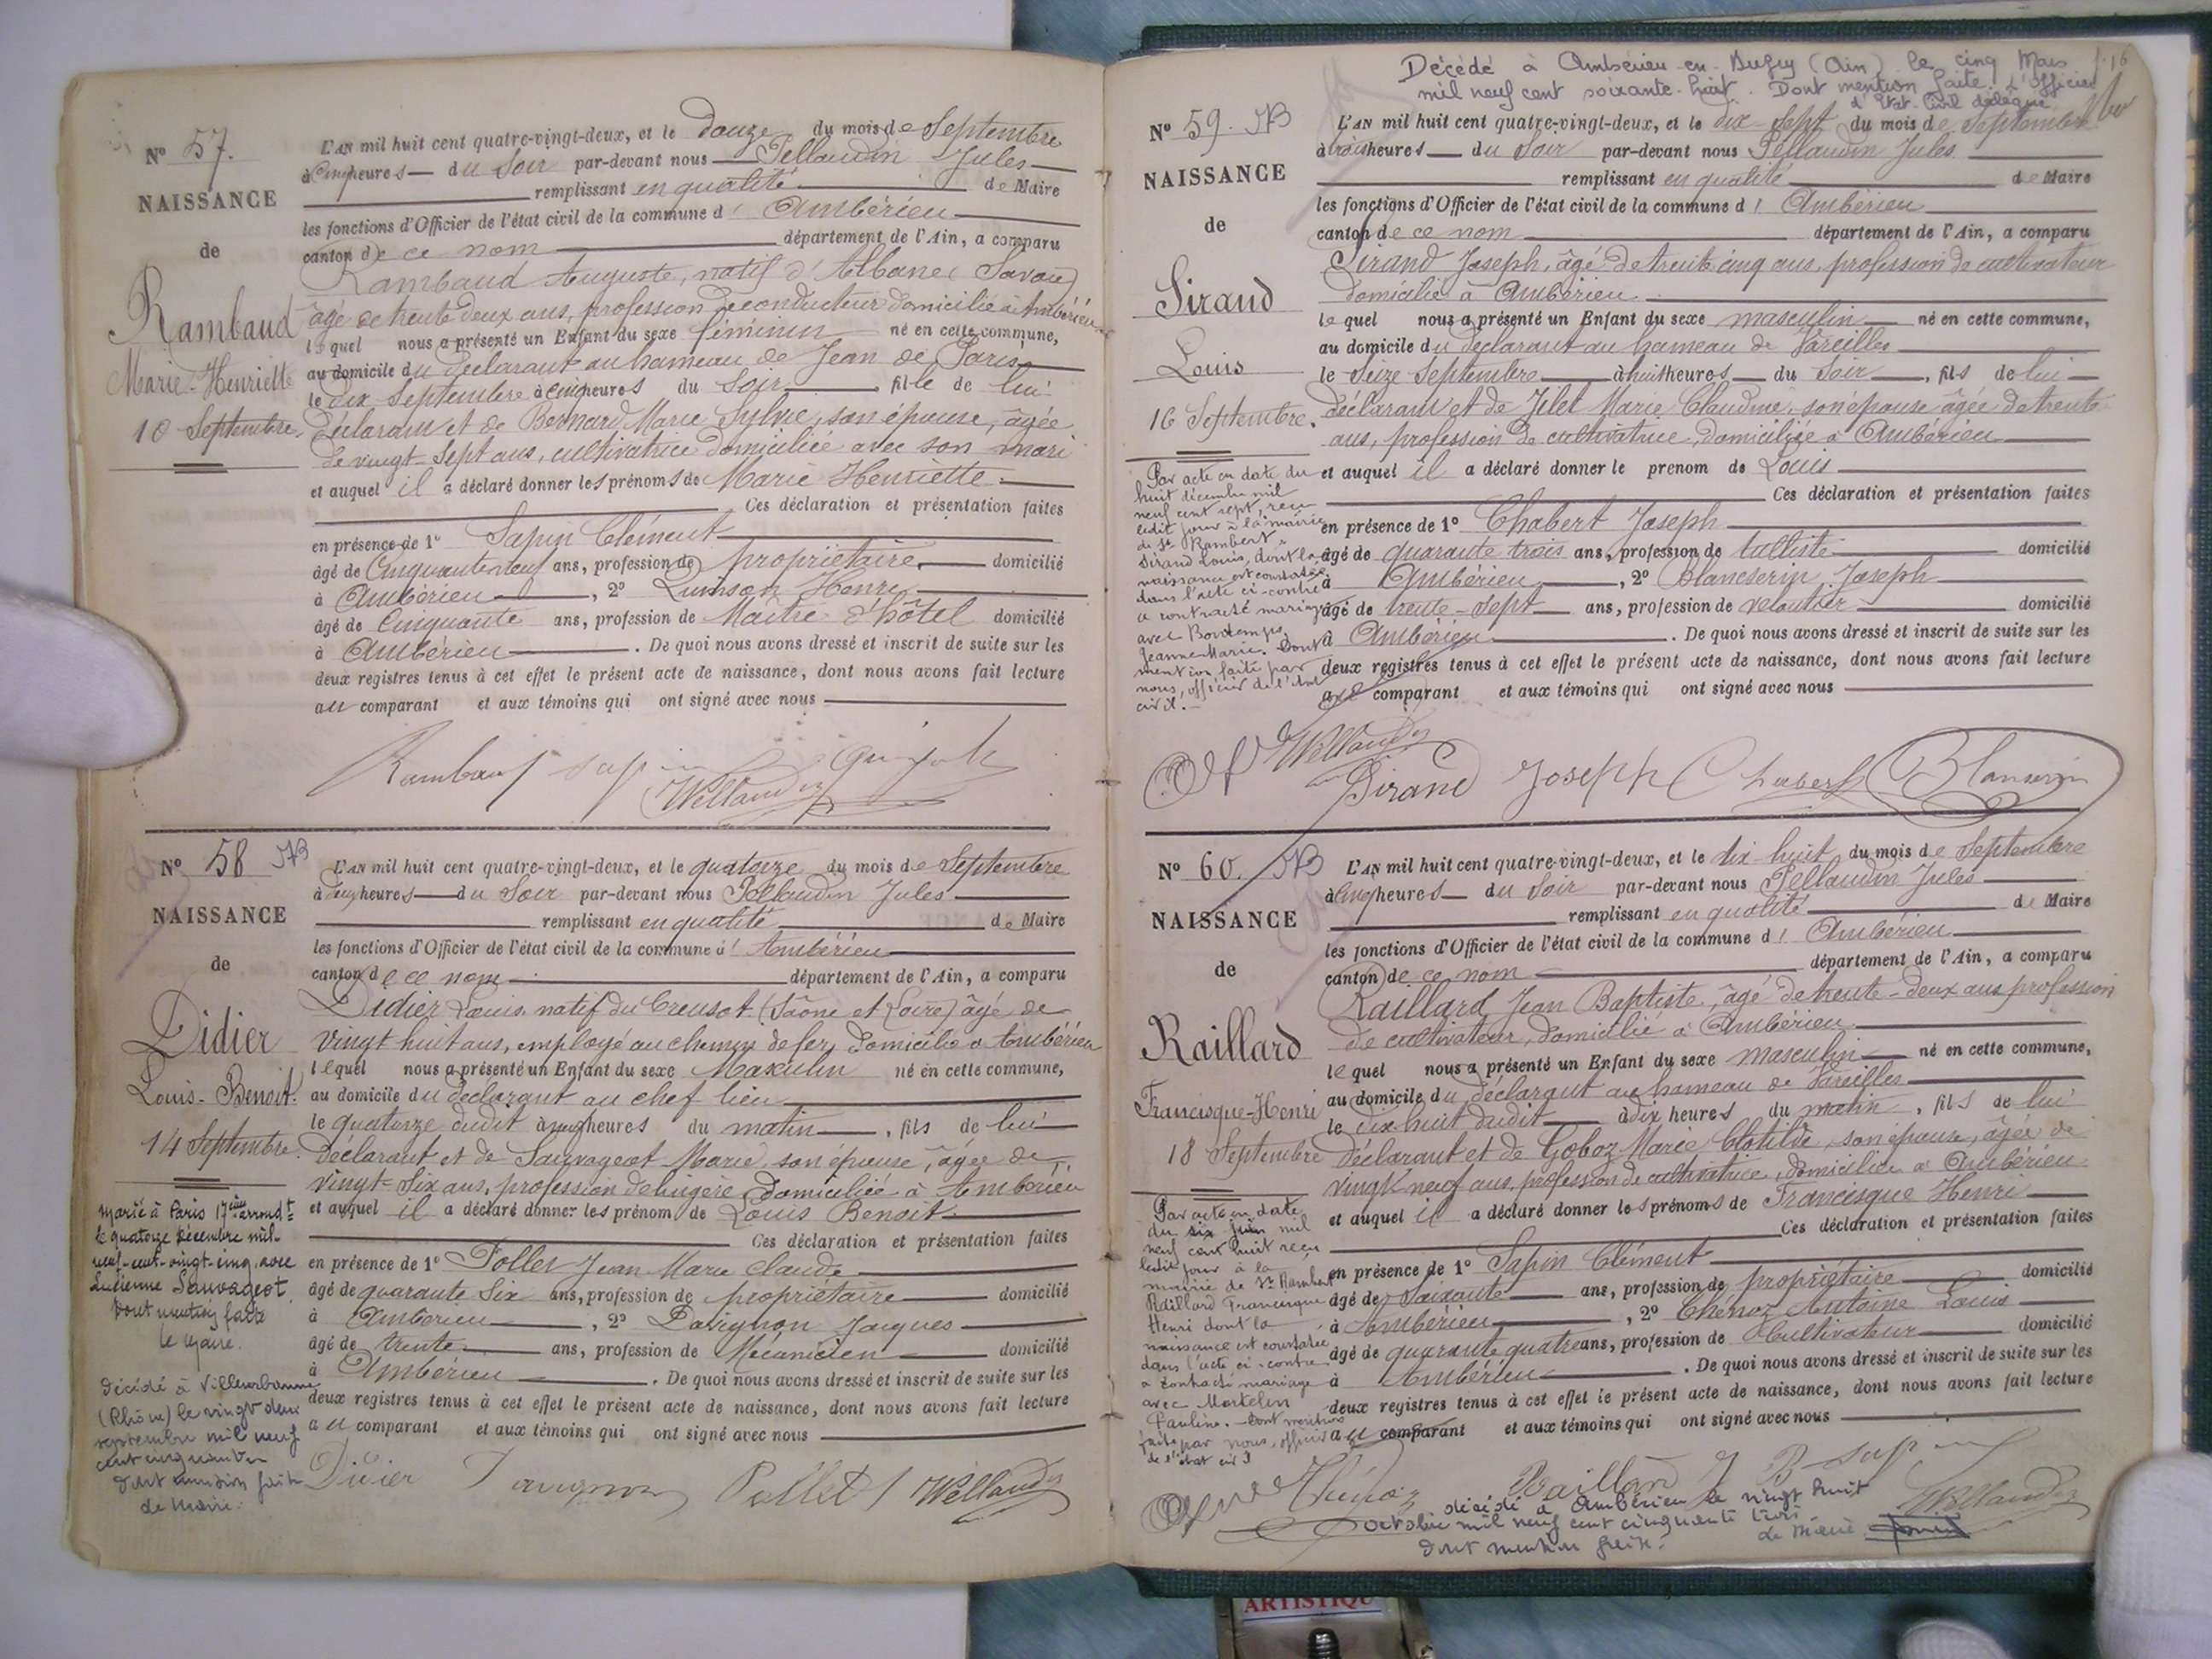 N° 57.
NAISSANCE
de
Rambaud
Marie-Henriette
10 Septembre.
L'AN mil huit cent quatre-vingt-deux, et le douze du mois de Septembre
à cinq heures du Soir par-devant nous Pellaudin Jules
remplissant en qualité de Maire
les fonctions d'Officier de l'état civil de la commune d' Ambérieu
canton de ce nom département de l'Ain, a comparu
Rambaud Auguste, natif d'Albane (Savoie)
âgé de trente deux ans, profession de conducteur domicilié à Ambérieu
lequel nous a présenté un Enfant du sexe féminin né en cette commune,
au domicile du déclarant au hameau de Jean de Paris
le dix Septembre à cinq heures du Soir fille de lui
déclarant et de Bernard Marie Sylvie, son épouse, âgée
de vingt-Sept ans, cultivatrice domiciliée avec son mari
et auquel il a déclaré donner les prénoms de Marie Henriette
Ces déclaration et présentation faites
en présence de 1° Sapin Clément
âgé de Cinquante neuf ans, profession de propriétaire domicilié
à Ambérieu, 2° Henri
âgé de Cinquante ans, profession de Maître d'hôtel domicilié
à Ambérieu. De quoi nous avons dressé et inscrit de suite sur les
deux registres tenus à cet effet le présent acte de naissance, dont nous avons fait lecture
au comparant et aux témoins qui ont signé avec nous
Rambaud Sapin
Pellaudin
N° 58
NAISSANCE
de
Didier
Louis-Benoit.
14 Septembre.
Marié à Paris 17ème arrondt
le quatorze décembre mil-
neuf-cent-vingt-cinq avec
Lucienne Sauvageot.
Dont mention faite
le Maire.
Décédé à Villeurbanne
(Rhône) le vingt deux
septembre mil neuf
cent cinquante
Dont mention faite
le Maire.
L'AN mil huit cent quatre-vingt-deux, et le quatorze du mois de Septembre
à cinq heures du Soir par-devant nous Pellaudin Jules
remplissant en qualité de Maire
les fonctions d'Officier de l'état civil de la commune d' Ambérieu
canton de ce nom département de l'Ain, a comparu
Didier Louis natif du Creusot (Saône et Loire) âgé de
vingt huit ans, employé au chemin de fer, domicilié à Ambérieu
lequel nous a présenté un Enfant du sexe Masculin né en cette commune,
au domicile du déclarant au chef lieu
le quatorze dudit à heures du matin, fils de lui
déclarant et de Sauvageot Marie, son épouse, âgée de
vingt-Six ans, profession de lingère domiciliée à Ambérieu
et auquel il a déclaré donner les prénom de Louis Benoit
Ces déclaration et présentation faites
en présence de 1° Follet Jean Marie Claude
âgé de quarante Six ans, profession de propriétaire domicilié
à Ambérieu, 2° Jacques
âgé de trente ans, profession de Mécanicien domicilié
à Ambérieu. De quoi nous avons dressé et inscrit de suite sur les
deux registres tenus à cet effet le présent acte de naissance, dont nous avons fait lecture
au comparant et aux témoins qui ont signé avec nous
Didier Follet Pellaudin
Décédé à Ambérieu-en-Bugey (Ain) le cinq Mars
mil neuf cent soixante-huit. Dont mention faite. L'Officier
d'Etat-Civil délégué
16
N° 59.
NAISSANCE
de
Sirand
Louis
16 Septembre.
Par acte en date du
huit décembre mil
neuf cent sept, reçu
ledit jour à la mairie
de St Rambert
Sirand Louis, dont la
naissance est constatée
dans l'acte ci-contre
a contracté mariage
avec Bontemps
Jeanne Marie. Dont
mention faite par
nous, officier de l'état
civil.
L'AN mil huit cent quatre-vingt-deux, et le dix-sept du mois de Septembre
à trois heures du Soir par-devant nous Pellaudin Jules
remplissant en qualité de Maire
les fonctions d'Officier de l'état civil de la commune d' Ambérieu
canton de ce nom département de l'Ain, a comparu
Sirand Joseph, âgé de trente cinq ans, profession de cultivateur
domicilié à Ambérieu
lequel nous a présenté un Enfant du sexe masculin né en cette commune,
au domicile du déclarant au hameau de Vareilles
le Seize Septembre à huit heures du Soir, fils de lui
déclarant et de Marie Claudine, son épouse âgée de trente
ans, profession de cultivatrice domiciliée à Ambérieu
et auquel il a déclaré donner le prenom de Louis
Ces déclaration et présentation faites
en présence de 1° Chabert Joseph
âgé de quarante trois ans, profession de tulliste domicilié
à Ambérieu, 2° Blancserin Joseph
âgé de trente-sept ans, profession de veloutier domicilié
à Ambérieu. De quoi nous avons dressé et inscrit de suite sur les
deux registres tenus à cet effet le présent acte de naissance, dont nous avons fait lecture
au comparant et aux témoins qui ont signé avec nous
Pellaudin
Sirand Joseph Chabert Blanserin
N° 60.
NAISSANCE
de
Raillard
Francisque-Henri
18 Septembre
Par acte en date
du six juin mil
neuf cent huit reçu
ledit jour à la
mairie de St Rambert
Raillard Francisque
Henri dont la
naissance est constatée
dans l'acte ci-contre
a contracté mariage
avec Martelin
Pauline. Dont mention
faite par nous, officier
de l'état civil
L'AN mil huit cent quatre-vingt-deux, et le dix-huit du mois de Septembre
à cinq heures du Soir par-devant nous Pellaudin Jules
remplissant en qualité de Maire
les fonctions d'Officier de l'état civil de la commune d' Ambérieu
canton de ce nom département de l'Ain, a comparu
Raillard Jean Baptiste, âgé de trente-deux ans profession
de cultivateur, domicilié à Ambérieu
lequel nous a présenté un Enfant du sexe masculin né en cette commune,
au domicile du déclarant au hameau de Vareilles
le dix huit dudit à dix heures du matin, fils de lui
déclarant et de Goboz Marie Clotilde, son épouse, âgée de
vingt neuf ans profession de cultivatrice, domiciliée à Ambérieu
et auquel il a déclaré donner les prénoms de Francisque Henri
Ces déclaration et présentation faites
en présence de 1° Sapin Clément
âgé de Soixante ans, profession de propriétaire domicilié
à Ambérieu, 2° Chénoz Antoine Louis
âgé de quarante quatre ans, profession de Cultivateur domicilié
à Ambérieu. De quoi nous avons dressé et inscrit de suite sur les
deux registres tenus à cet effet le présent acte de naissance, dont nous avons fait lecture
au comparant et aux témoins qui ont signé avec nous
Chénoz Raillard J B Sapin Pellaudin
décédé à Ambérieu le vingt huit
octobre mil neuf cent cinquante trois
dont mention faite. Le Maire
ARTISTIQU